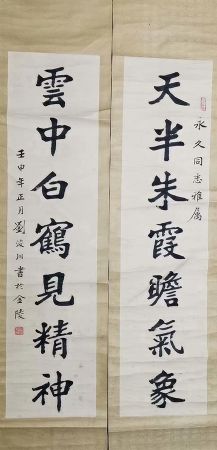 天半朱霞瞻氣象
永久同志雅属
雲中白鶴見精神
壬申年正月劉浚川書於金陵